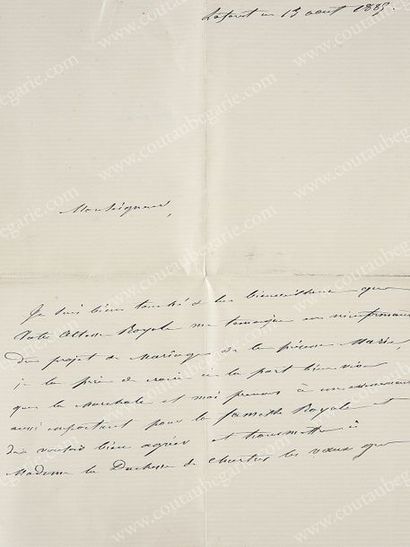 Laforest ce 13 aout 1885.
Monseigneur,
Je suis bien touché de la bienveillance que
Votre Altesse Royale me temoigne en m'informant
du projet de Mariage de la Princesse Marie,
je la prie de croire à la part bien vive
que la Marechale et moi prenons à un evenement
aussi important pour la famille Royale et
de vouloir bien agréer et transmettre à
Madame la Duchesse de Chartres les vœux que
www.coutaubegarie.com